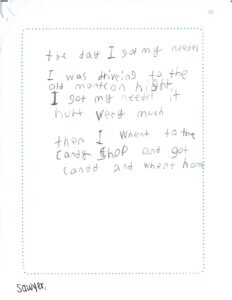 the day I got my needel
I was driveing to the
old montson hight.
I got my needel it
hurt very much
then I whent to the
candy shop and got
candy and whent home
sawyer.